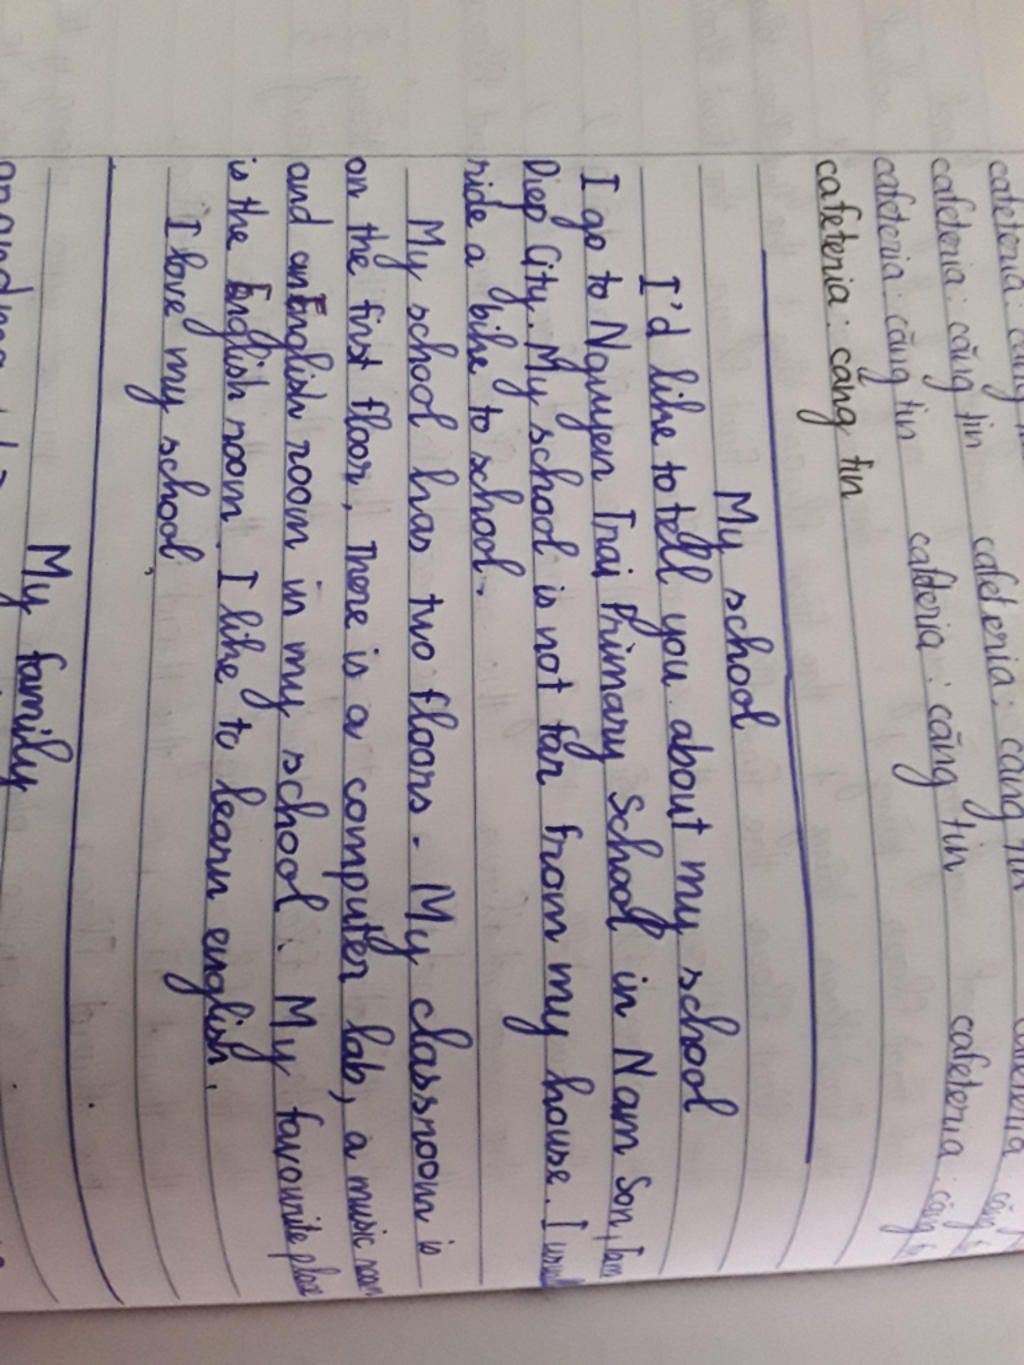 cafeteria: căng
cafeteria: căng tin cafeteria: căng tin
cafeteria: căng tin cafeteria: căng tin cafeteria: căng
cafeteria: căng tin
My school
I'd like to tell you about my school
I go to Nguyen Trai Primary School in Nam Son, Tam
Diep City. My school is not far from my house. I usual
ride a bike to school.
My school has two floors. My classroom is
on the first floor, There is a computer lab, a music room
and an English room in my school. My favourite place
is the English room. I like to learn english.
I love my school.
My family